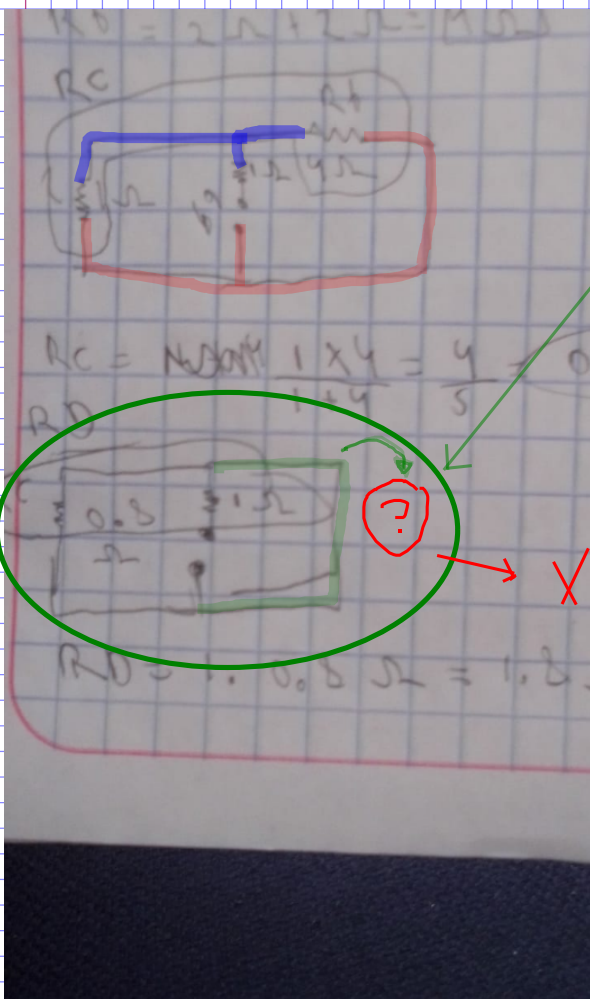 = 2Ω + 2Ω =
RC
Rt
1 Ω
1 Ω
4Ω
RC =
1 x 4 / 1 + 4 = 4 / 5 = 0
RD
C
0.8 Ω
1 Ω
?
X
RD = 1. 0.8 Ω = 1.8